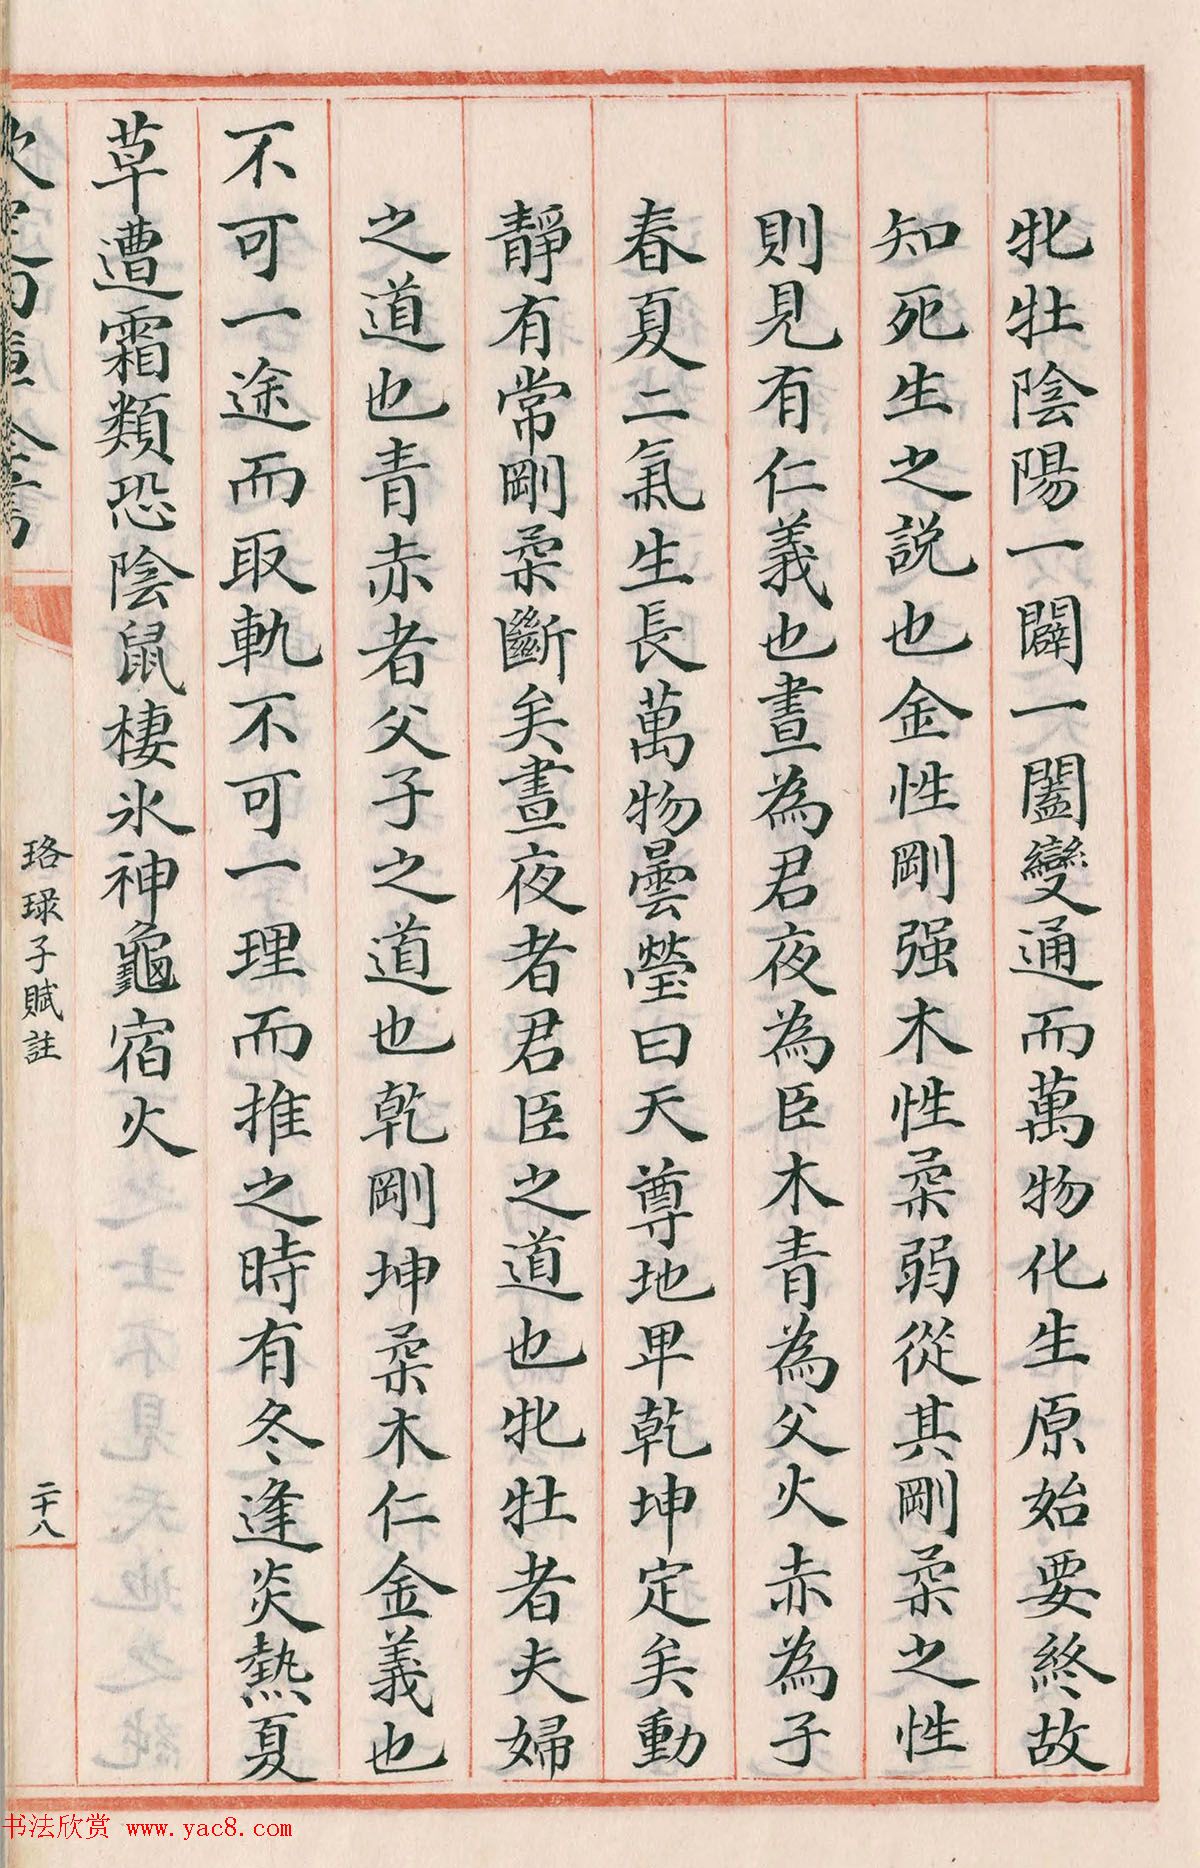 牝牡陰陽一闢一闔變通而萬物化生原始要終故
知死生之説也金性剛强木性柔弱從其剛柔之性
則見有仁義也晝為君夜為臣木青為父火赤為子
春夏二氣生長萬物曇瑩曰天尊地卑乾坤定矣動
靜有常剛柔斷矣晝夜者君臣之道也牝牡者夫婦
之道也青赤者父子之道也乾剛坤柔木仁金義也
不可一途而取軌不可一理而推之時有冬逢炎熱夏
草遭霜類恐陰鼠棲氷神龜宿火
欽定四庫全書
珞琭子賦註
二十八
书法欣赏 www.yac8.com